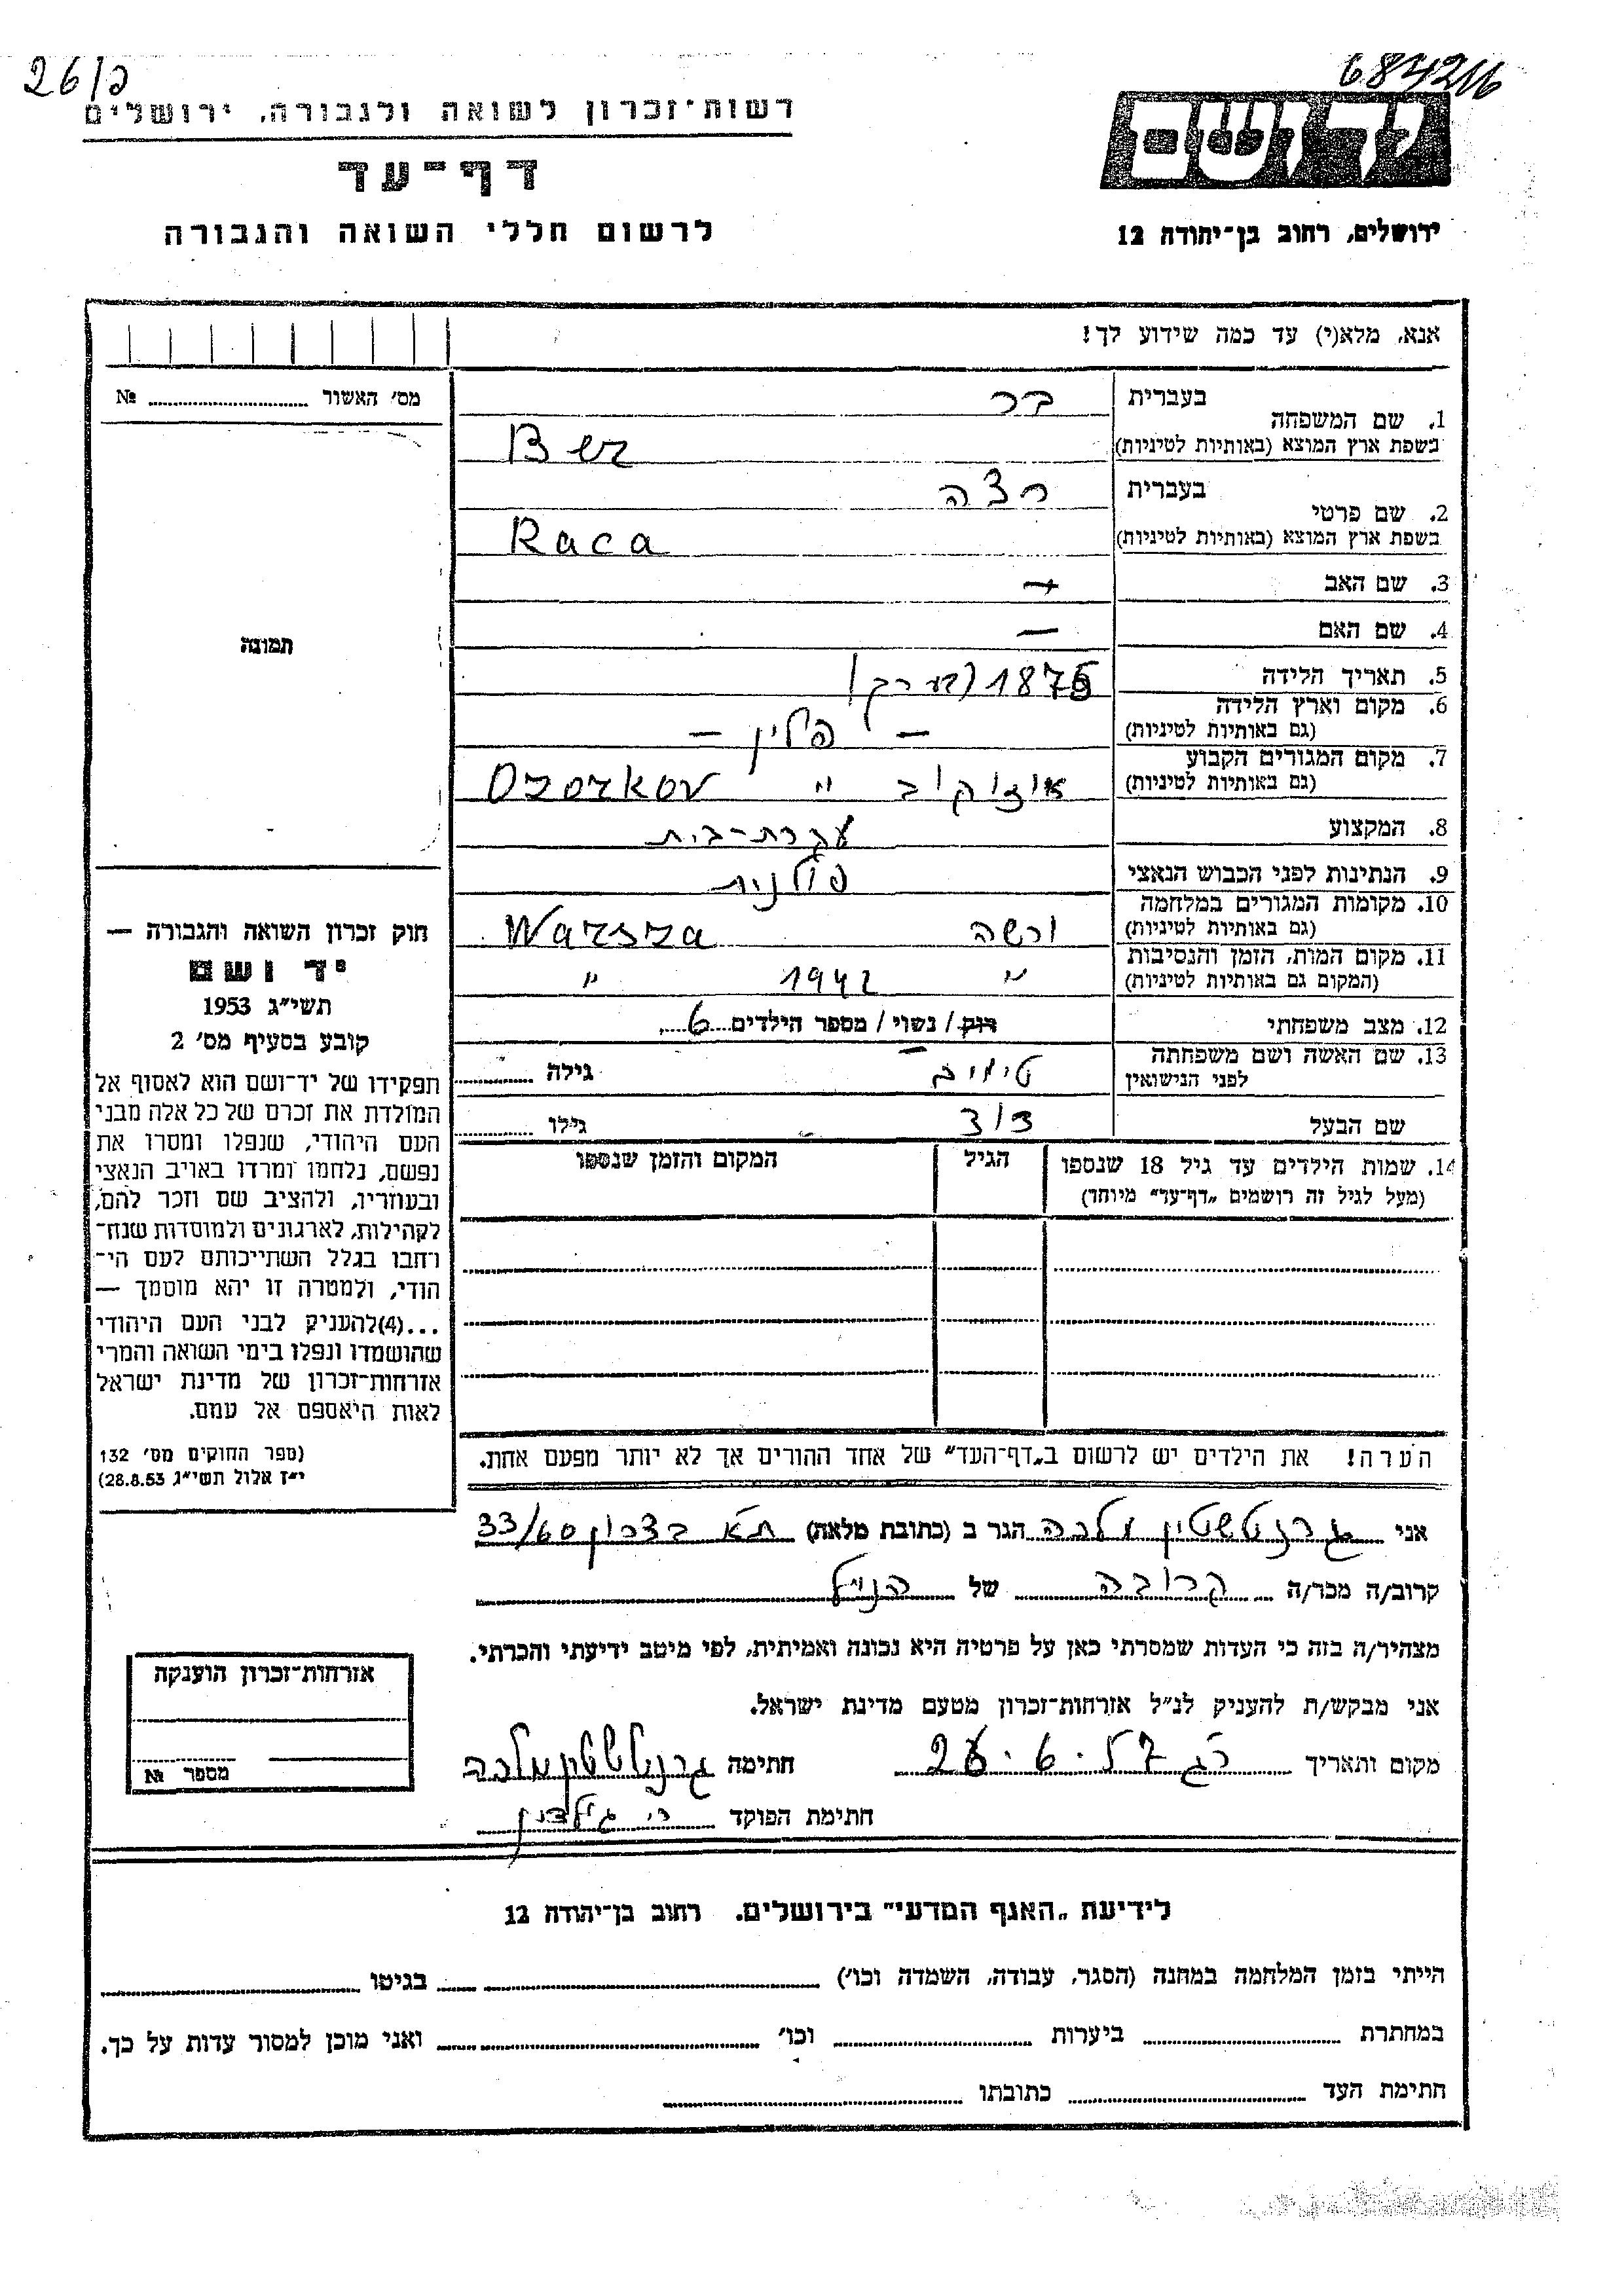 26/כ
684216
רשות־זכרון לשואה ולגבורה, ירושלים
דף־עד
לרשום חללי השואה והגבורה
יד ושם
ירושלים, רחוב בן־יהודה 12
אנא, מלא(י) עד כמה שידוע לך!
מס׳ האשור № 
תמונה
1. שם המשפחה
בעברית בר
בשפת ארץ המוצא (באותיות לטיניות) Ber
2. שם פרטי
בעברית רצה
בשפת ארץ המוצא (באותיות לטיניות) Raca
3. שם האב —
4. שם האם —
5. תאריך הלידה 1875 (בערך)
6. מקום וארץ הלידה
(גם באותיות לטיניות) — פולין —
7. מקום המגורים הקבוע
(גם באותיות לטיניות) אוזוקוב " Ozorkov
8. המקצוע עקרת-בית
9. הנתינות לפני הכבוש הנאצי פולנית
10. מקומות המגורים במלחמה
(גם באותיות לטיניות) ורשה Warsza
11. מקום המות, הזמן והנסיבות
(המקום גם באותיות לטיניות) " 1942 "
12. מצב משפחתי רוק / נשוי / מספר הילדים 6
13. שם האשה ושם משפחתה
לפני הנישואין גילה
שם הבעל דוד גילו
14. שמות הילדים עד גיל 18 שנספו
(מעל לגיל זה רושמים „דף־עד״ מיוחד)
הגיל
המקום והזמן שנספו
הערה! את הילדים יש לרשום ב„דף־העד״ של אחד ההורים אך לא יותר מפעם אחת.
חוק זכרון השואה והגבורה —
יד ושם
תשי״ג 1953
קובע בסעיף מס׳ 2
תפקידו של יד־ושם הוא לאסוף אל
המולדת את זכרם של כל אלה מבני
העם היהודי, שנפלו ומסרו את
נפשם, נלחמו ומרדו באויב הנאצי
ובעוזריו, ולהציב שם וזכר להם,
לקהילות, לארגונים ולמוסדות שנח־
רחבו בגלל השתייכותם לעם הי־
הודי, ולמטרה זו יהא מוסמך —
...(4)להעניק לבני העם היהודי
שהושמדו ונפלו בימי השואה והמרי
אזרחות־זכרון של מדינת ישראל
לאות היאספם אל עמם.
(ספר החוקים מס׳ 132
י״ז אלול תשי״ג 28.8.53)
אני גרניטשטין מלכה הגר ב (כתובת מלאה) ת״א בצרון 33/60
קרוב/ה מכר/ה קרובה של הנ״ל
מצהיר/ה בזה כי העדות שמסרתי כאן על פרטיה היא נכונה ואמיתית, לפי מיטב ידיעתי והכרתי.
אני מבקש/ת להעניק לנ״ל אזרחות־זכרון מטעם מדינת ישראל.
מקום ותאריך רג 26.6.57 חתימה גרניטשטין מלכה
חתימת הפוקד
אזרחות־זכרון הוענקה
מספר №
לידיעת „האגף המדעי״ בירושלים. רחוב בן־יהודה 12
הייתי בזמן המלחמה במחנה (הסגר, עבודה, השמדה וכו׳) בגיטו
במחתרת ביערות וכו׳ ואני מוכן למסור עדות על כך.
חתימת העד כתובתו